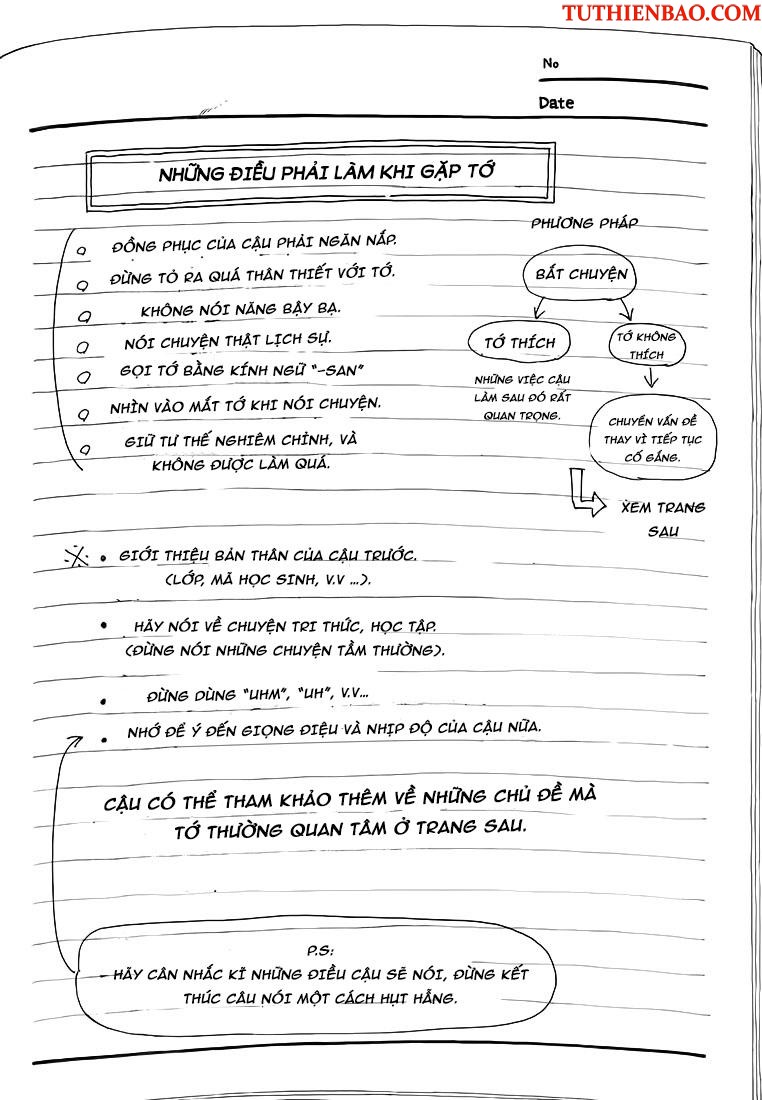 TUTHIENBAO.COM
No
Date
NHỮNG ĐIỀU PHẢI LÀM KHI GẶP TỚ
ĐỒNG PHỤC CỦA CẬU PHẢI NGĂN NẮP.
ĐỪNG TỎ RA QUÁ THÂN THIẾT VỚI TỚ.
KHÔNG NÓI NĂNG BẬY BẠ.
NÓI CHUYỆN THẬT LỊCH SỰ.
GỌI TỚ BẰNG KÍNH NGỮ "-SAN"
NHÌN VÀO MẮT TỚ KHI NÓI CHUYỆN.
GIỮ TƯ THẾ NGHIÊM CHỈNH, VÀ
KHÔNG ĐƯỢC LÀM QUÁ.
PHƯƠNG PHÁP
BẮT CHUYỆN
TỚ THÍCH
TỚ KHÔNG
THÍCH
NHỮNG VIỆC CẬU
LÀM SAU ĐÓ RẤT
QUAN TRỌNG.
CHUYỂN VẤN ĐỀ
THAY VÌ TIẾP TỤC
CỐ GẮNG.
XEM TRANG
SAU
※ • GIỚI THIỆU BẢN THÂN CỦA CẬU TRƯỚC.
(LỚP, MÃ HỌC SINH, V.V ...).
• HÃY NÓI VỀ CHUYỆN TRI THỨC, HỌC TẬP.
(ĐỪNG NÓI NHỮNG CHUYỆN TẦM THƯỜNG).
• ĐỪNG DÙNG "UHM", "UH", V.V...
• NHỚ ĐỂ Ý ĐẾN GIỌNG ĐIỆU VÀ NHỊP ĐỘ CỦA CẬU NỮA.
CẬU CÓ THỂ THAM KHẢO THÊM VỀ NHỮNG CHỦ ĐỀ MÀ
TỚ THƯỜNG QUAN TÂM Ở TRANG SAU.
P.S:
- HÃY CÂN NHẮC KĨ NHỮNG ĐIỀU CẬU SẼ NÓI, ĐỪNG KẾT
THÚC CÂU NÓI MỘT CÁCH HỤT HẪNG.